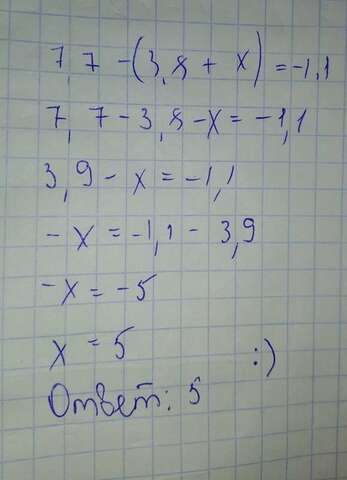 7,7 - (3,8 + x) = -1,1
7,7 - 3,8 - x = -1,1
3,9 - x = -1,1
- x = -1,1 - 3,9
- x = - 5
x = 5
:)
Ответ: 5